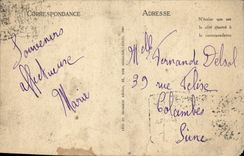 CORRESPONDANCE
Souvenirs
affectueuse
Marie
ADRESSE
N'écrire que sur
le côté réservé à
la correspondance
Melle Fernande Delsol
39 rue Félix
Colombes
Seine